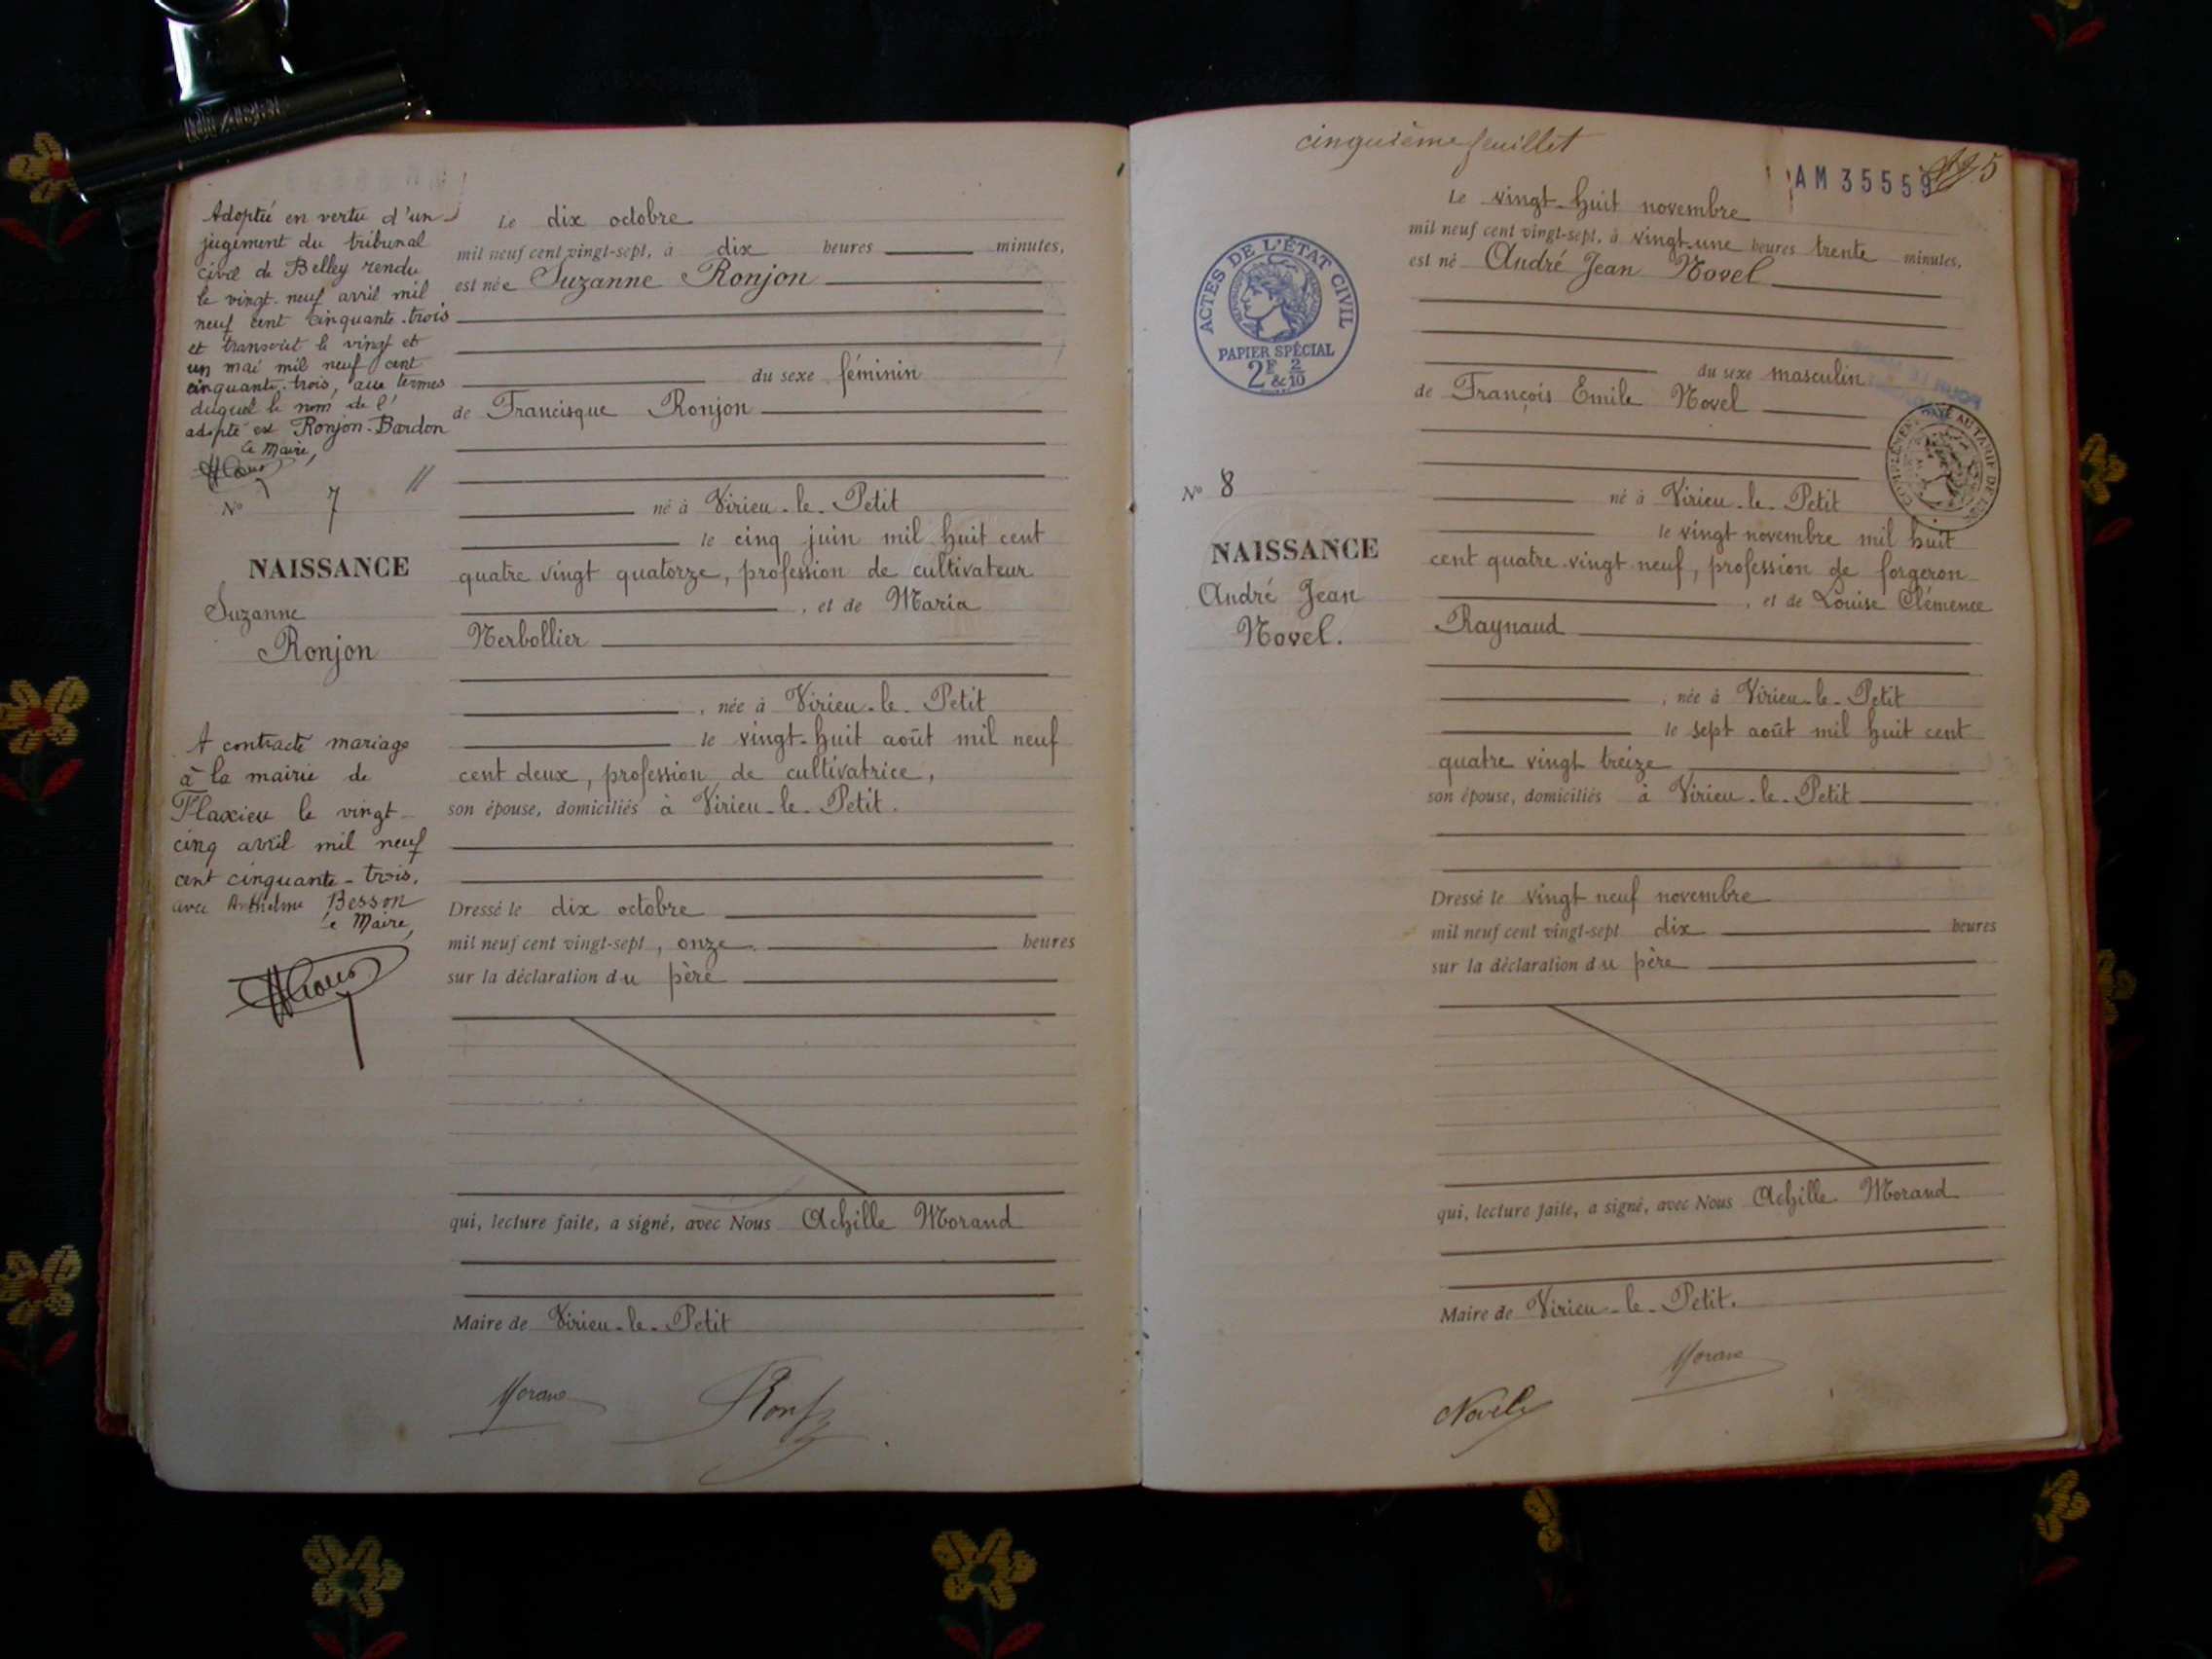 Adoptée en vertu d'un
jugement du tribunal
civil de Belley rendu
le vingt-neuf avril mil
neuf cent cinquante-trois
et transcrit le vingt et
un mai mil neuf cent
cinquante-trois, aux termes
duquel le nom de l'
adopté est Ronjon-Bardon
Le Maire,
N° 7
NAISSANCE
Suzanne
Ronjon
A contracté mariage
à la mairie de
Flaxieu le vingt-
cinq avril mil neuf
cent cinquante-trois.
avec Anthelme Besson
Le Maire,
Le dix octobre
mil neuf cent vingt-sept, à dix heures minutes,
est née Suzanne Ronjon
du sexe féminin
de Francisque Ronjon
né à Virieu-le-Petit
le cinq juin mil huit cent
quatre vingt quatorze, profession de cultivateur
, et de Maria
Nerbollier
, née à Virieu-le-Petit
le vingt-huit août mil neuf
cent deux, profession de cultivatrice,
son épouse, domiciliés à Virieu-le-Petit.
Dressé le dix octobre
mil neuf cent vingt-sept, onze heures
sur la déclaration du père
qui, lecture faite, a signé, avec Nous Achille Morand
Maire de Virieu-le-Petit
Morand
cinquième feuillet
AM 35559
5
ACTES DE L'ÉTAT CIVIL
PAPIER SPÉCIAL
2F & 2/10
N° 8
NAISSANCE
André Jean
Novel.
Le vingt-huit novembre
mil neuf cent vingt-sept, à vingt-une heures trente minutes,
est né André Jean Novel
du sexe masculin
de François Emile Novel
né à Virieu-le-Petit
le vingt novembre mil huit
cent quatre-vingt neuf, profession de forgeron
, et de Louise Clémence
Raynaud
, née à Virieu-le-Petit
le sept août mil huit cent
quatre vingt treize
son épouse, domiciliés à Virieu-le-Petit
Dressé le vingt neuf novembre
mil neuf cent vingt-sept dix heures
sur la déclaration du père
qui, lecture faite, a signé, avec Nous Achille Morand
Maire de Virieu-le-Petit.
Morand
Novel